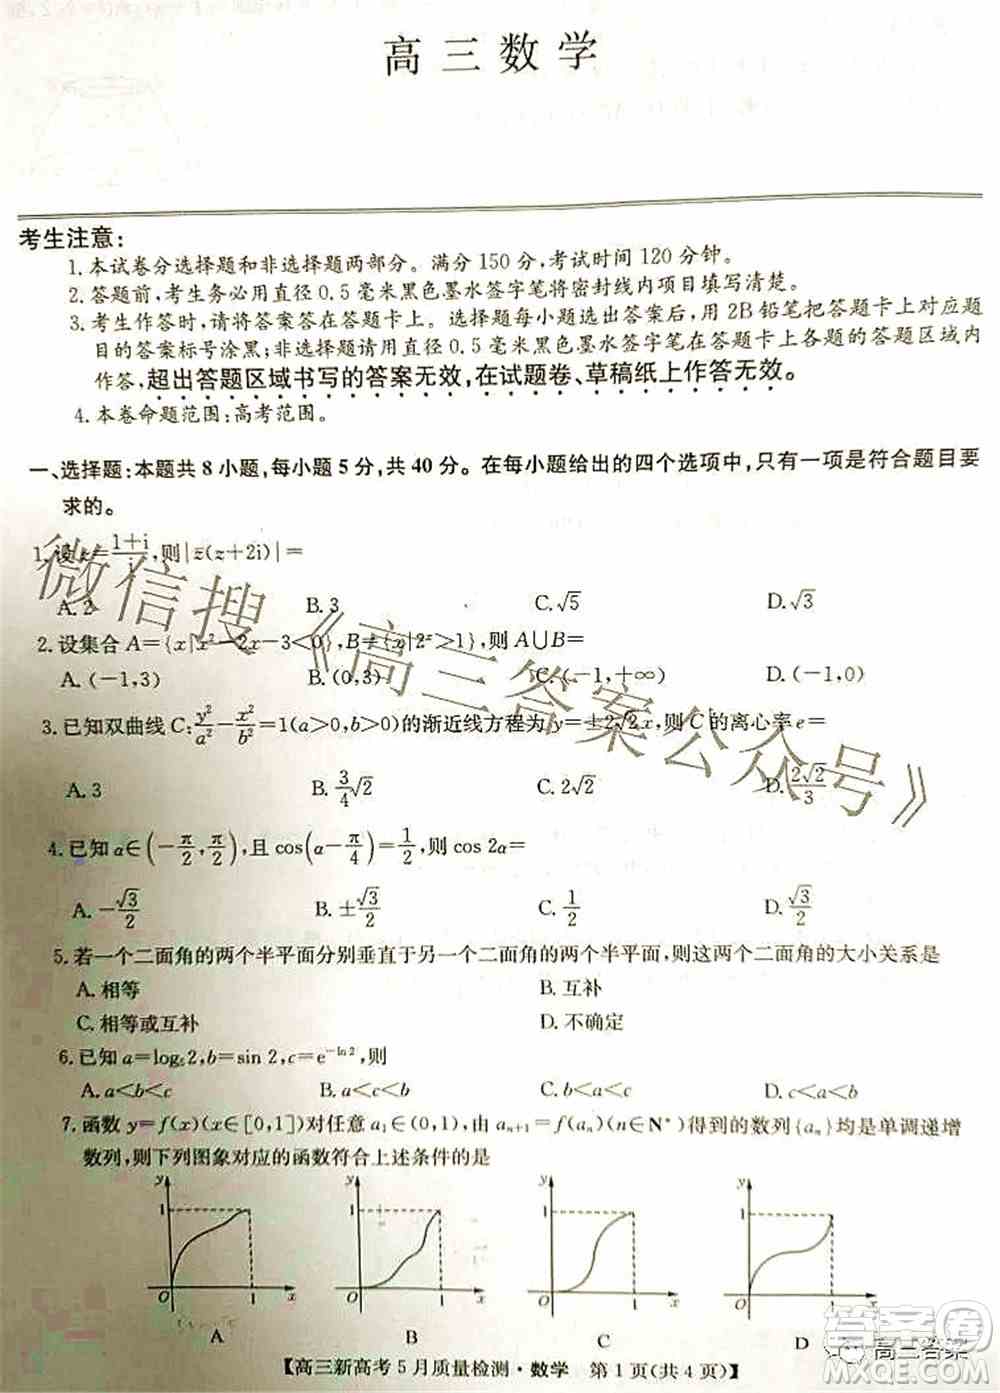 高三数学
考生注意:
1.本试卷分选择题和非选择题两部分。满分150分,考试时间120分钟。
2.答题前,考生务必用直径0.5毫米黑色墨水签字笔将密封线内项目填写清楚。
3.考生作答时,请将答案答在答题卡上。选择题每小题选出答案后,用2B铅笔把答题卡上对应题
目的答案标号涂黑;非选择题请用直径0.5毫米黑色墨水签字笔在答题卡上各题的答题区域内
作答,超出答题区域书写的答案无效,在试题卷、草稿纸上作答无效。
4.本卷命题范围:高考范围。
一、选择题:本题共8小题,每小题5分,共40分。在每小题给出的四个选项中,只有一项是符合题目要
求的。
1.设z=(1+i)/i,则|z̄(z+2i)|=
A.2 B.3 C.√5 D.√3
2.设集合A={x|x²-2x-3<0},B={x|2ˣ>1},则A∪B=
A.(-1,3) B.(0,3) C.(-1,+∞) D.(-1,0)
3.已知双曲线C:y²/a²-x²/b²=1(a>0,b>0)的渐近线方程为y=±2√2x,则C的离心率e=
A.3 B.3/4√2 C.2√2 D.2√2/3
4.已知α∈(-π/2,π/2),且cos(α-π/4)=1/2,则cos 2α=
A.-√3/2 B.±√3/2 C.1/2 D.√3/2
5.若一个二面角的两个半平面分别垂直于另一个二面角的两个半平面,则这两个二面角的大小关系是
A.相等 B.互补
C.相等或互补 D.不确定
6.已知a=log₅2,b=sin 2,c=e^(-ln2),则
A.a<b<c B.a<c<b C.b<a<c D.c<a<b
7.函数y=f(x)(x∈[0,1])对任意a₁∈(0,1),由aₙ₊₁=f(aₙ)(n∈N*)得到的数列{aₙ}均是单调递增
数列,则下列图象对应的函数符合上述条件的是
y 1 1 x
y 1 1 x
y 1 1 x
y 1 1 x
A B C D
【高三新高考5月质量检测·数学 第1页(共4页)】
微信搜《高三答案公众号》
答案圈
高三答案